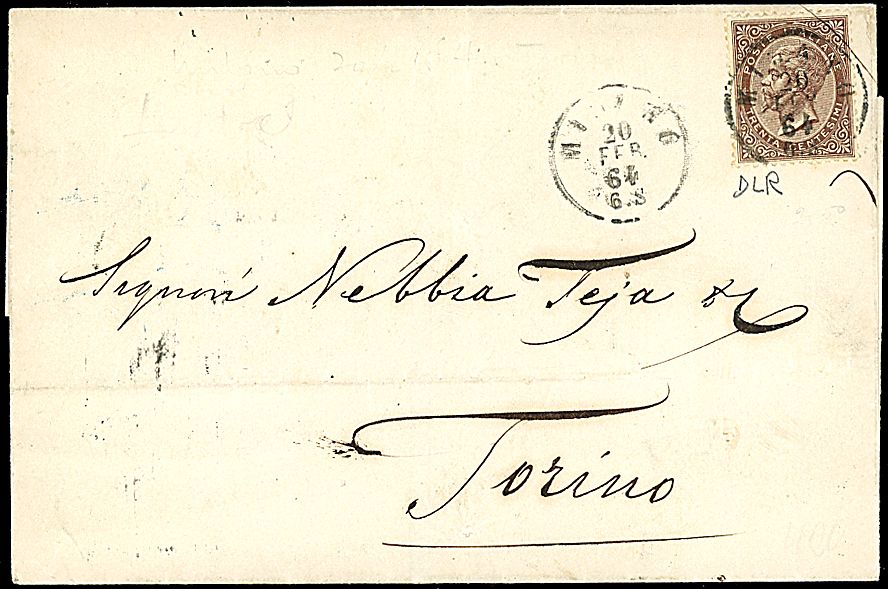 POSTE ITALIANE
TRENTA CENTESIMI
MILANO
20
FEB
64
MILANO
20
FEB
64
6.S
DLR
Signori Nebbia Teja & C
Torino